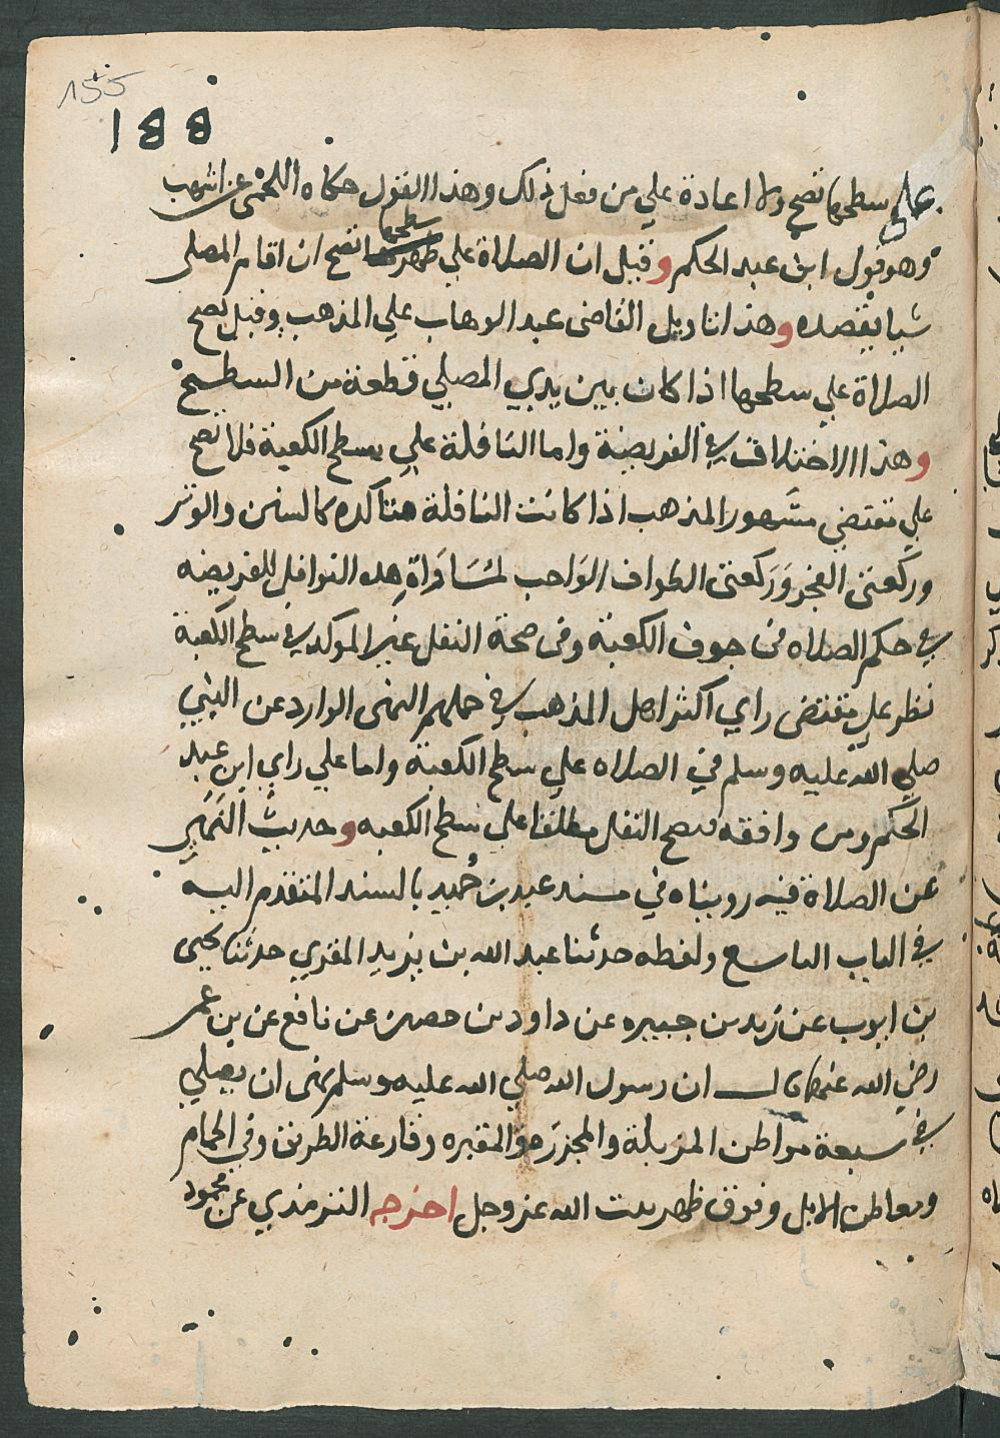 155
188
علي سطحها تصح ولا اعادة علي من فعل ذلك وهذا القول حكاه اللخمي عن اشهب
وهو قول ابن عبد الحكم وقيل ان الصلاة علي سطحها تصح ان اقام المصلي
شيا يقصده وهذا تاويل القاضي عبد الوهاب علي المذهب وقيل تصح
الصلاة علي سطحها اذا كان بين يدي المصلي قطعة من السطح
وهذا الاختلاف في الفريضة واما النافلة علي سطح الكعبة فلا تصح
علي مقتضي مشهور المذهب اذا كانت النافلة متاكده كالسنن والوتر
وركعتي الفجر وَرَكعتي الطواف الوَاجب لمُسَاوَاةِ هذه النوافل للفريضه
في حكم الصلاه في جوف الكعبة وفي صحة النفل غير الموكد في سطح الكعبة
نظر علي مقتضي راي اكثر اهل المذهب في حملهم النهي الوارد عن النبي
صلي الله عليه وسلم في الصلاه علي سطح الكعبة واما علي راي ابن عبد
الحكم ومن وافقه فيصح النفل مطلقا علي سطح الكعبه وحديث النَهي
عن الصلاة فيه رويناه في مسند عبد بن حُميد بالسند المتقدم اليه
في الباب التاسع ولفظه حدثنا عبد الله بن يزيد المقري حدثنا يحيى
بن ايوب عن زيد بن جبيره عن داود بن حصين عن نافع عن بن عمر
رضي الله عنهما قال ان رسول الله صلي الله عليه وسلم نهى ان يصلي
في سبعة مواطن المزبلة والمجزرة والمقبره وقارعة الطريق وفي الحمام
ومعاطن الابل وفوق ظهر بيت الله عز وجل اخرجه الترمذي عن محمود